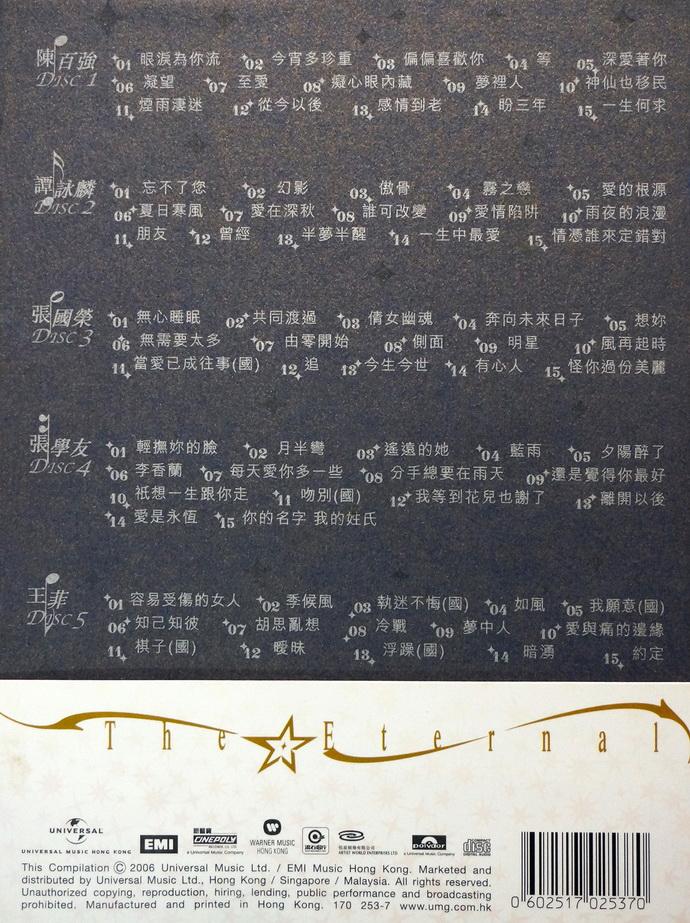 陳百強
Disc 1
01 眼淚為你流 02 今宵多珍重 03 偏偏喜歡你 04 等 05 深愛著你
06 凝望 07 至愛 08 癡心眼內藏 09 夢裡人 10 神仙也移民
11 煙雨凄迷 12 從今以後 13 感情到老 14 盼三年 15 一生何求
譚詠麟
Disc 2
01 忘不了您 02 幻影 03 傲骨 04 霧之戀 05 愛的根源
06 夏日寒風 07 愛在深秋 08 誰可改變 09 愛情陷阱 10 雨夜的浪漫
11 朋友 12 曾經 13 半夢半醒 14 一生中最愛 15 情憑誰來定錯對
張國榮
Disc 3
01 無心睡眠 02 共同渡過 03 倩女幽魂 04 奔向未來日子 05 想妳
06 無需要太多 07 由零開始 08 側面 09 明星 10 風再起時
11 當愛已成往事(國) 12 追 13 今生今世 14 有心人 15 怪你過份美麗
張學友
Disc 4
01 輕撫妳的臉 02 月半彎 03 遙遠的她 04 藍雨 05 夕陽醉了
06 李香蘭 07 每天愛你多一些 08 分手總要在雨天 09 還是覺得你最好
10 祇想一生跟你走 11 吻別(國) 12 我等到花兒也謝了 13 離開以後
14 愛是永恆 15 你的名字 我的姓氏
王菲
Disc 5
01 容易受傷的女人 02 季候風 03 執迷不悔(國) 04 如風 05 我願意(國)
06 知己知彼 07 胡思亂想 08 冷戰 09 夢中人 10 愛與痛的邊緣
11 棋子(國) 12 曖昧 13 浮躁(國) 14 暗湧 15 約定
The Eternal
UNIVERSAL
UNIVERSAL MUSIC HONG KONG
EMI
CINEPOLY
RECORDS CO. LTD
a Universal Music Company
WARNER MUSIC
HONG KONG
ARTIST WORLD ENTERPRISES LTD
polydor
a Universal Music Company
COMPACT
disc
DIGITAL AUDIO
This Compilation Ⓒ 2006 Universal Music Ltd. / EMI Music Hong Kong. Marketed and
distributed by Universal Music Ltd., Hong Kong / Singapore / Malaysia. All rights reserved.
Unauthorized copying, reproduction, hiring, lending, public performance and broadcasting
prohibited. Manufactured and printed in Hong Kong. 170 253-7 www.umg.com.hk
0 602517 025370